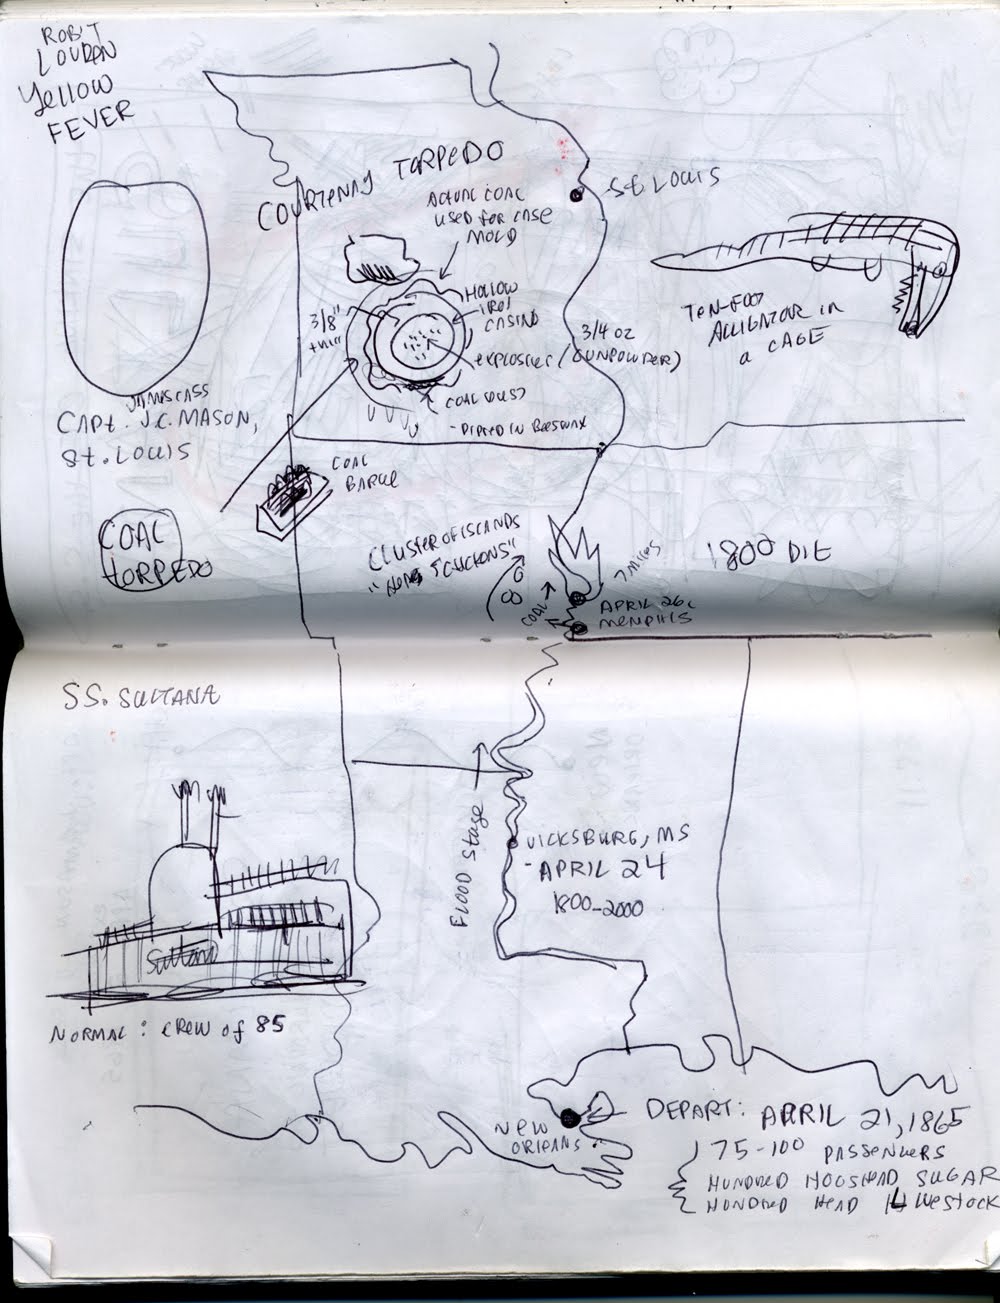 ROB'T
LOUDEN
Yellow
FEVER
COURTENAY TORPEDO
ACTUAL COAL
USED FOR CASE
MOLD
St. LOUIS
HOLLOW
CASING
3/8"
3/4 OZ
EXPLOSIVES (GUNPOWDER)
COAL DUST
- DIPPED IN BEESWAX
TEN-FOOT
ALLIGATOR IN
a CAGE
JAMES CASS
CAPT. J.C. MASON,
St. LOUIS
COAL
BARGE
COAL
TORPEDO
CLUSTER OF ISLANDS
7 MILES
1800 DIE
COAL
APRIL 26,
MEMPHIS
SS. SULTANA
FLOOD Stage
VICKSBURG, MS
- APRIL 24
1800-2000
Sultana
NORMAL: CREW of 85
NEW
ORLEANS
DEPART: APRIL 21, 1865
75-100 PASSENGERS
HUNDRED HOGSHEAD SUGAR
HUNDRED HEAD LIVESTOCK